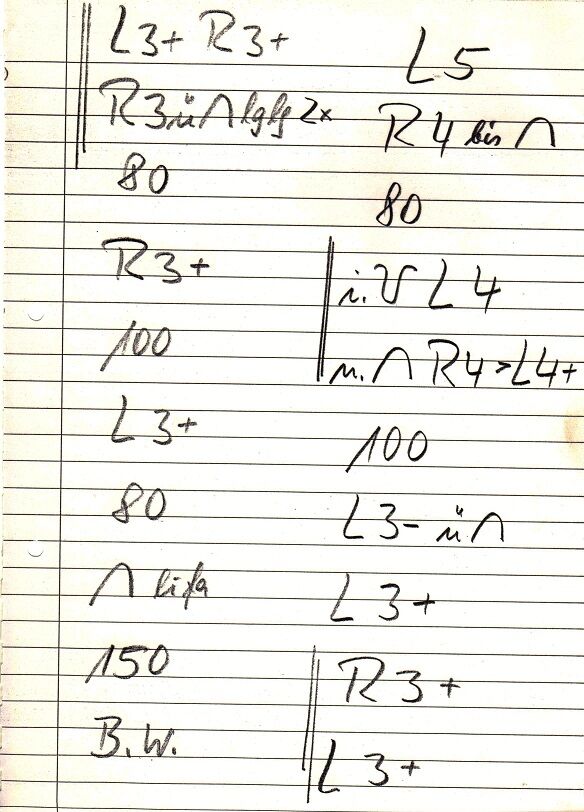 L3+ R3+
R3ü∩ lglg 2x
80
R3+
100
L3+
80
∩
150
B.W.
L5
R4 bis ∩
80
i. V L4
∩ R4>L4+
100
L3- ü∩
L3+
R3+
L3+